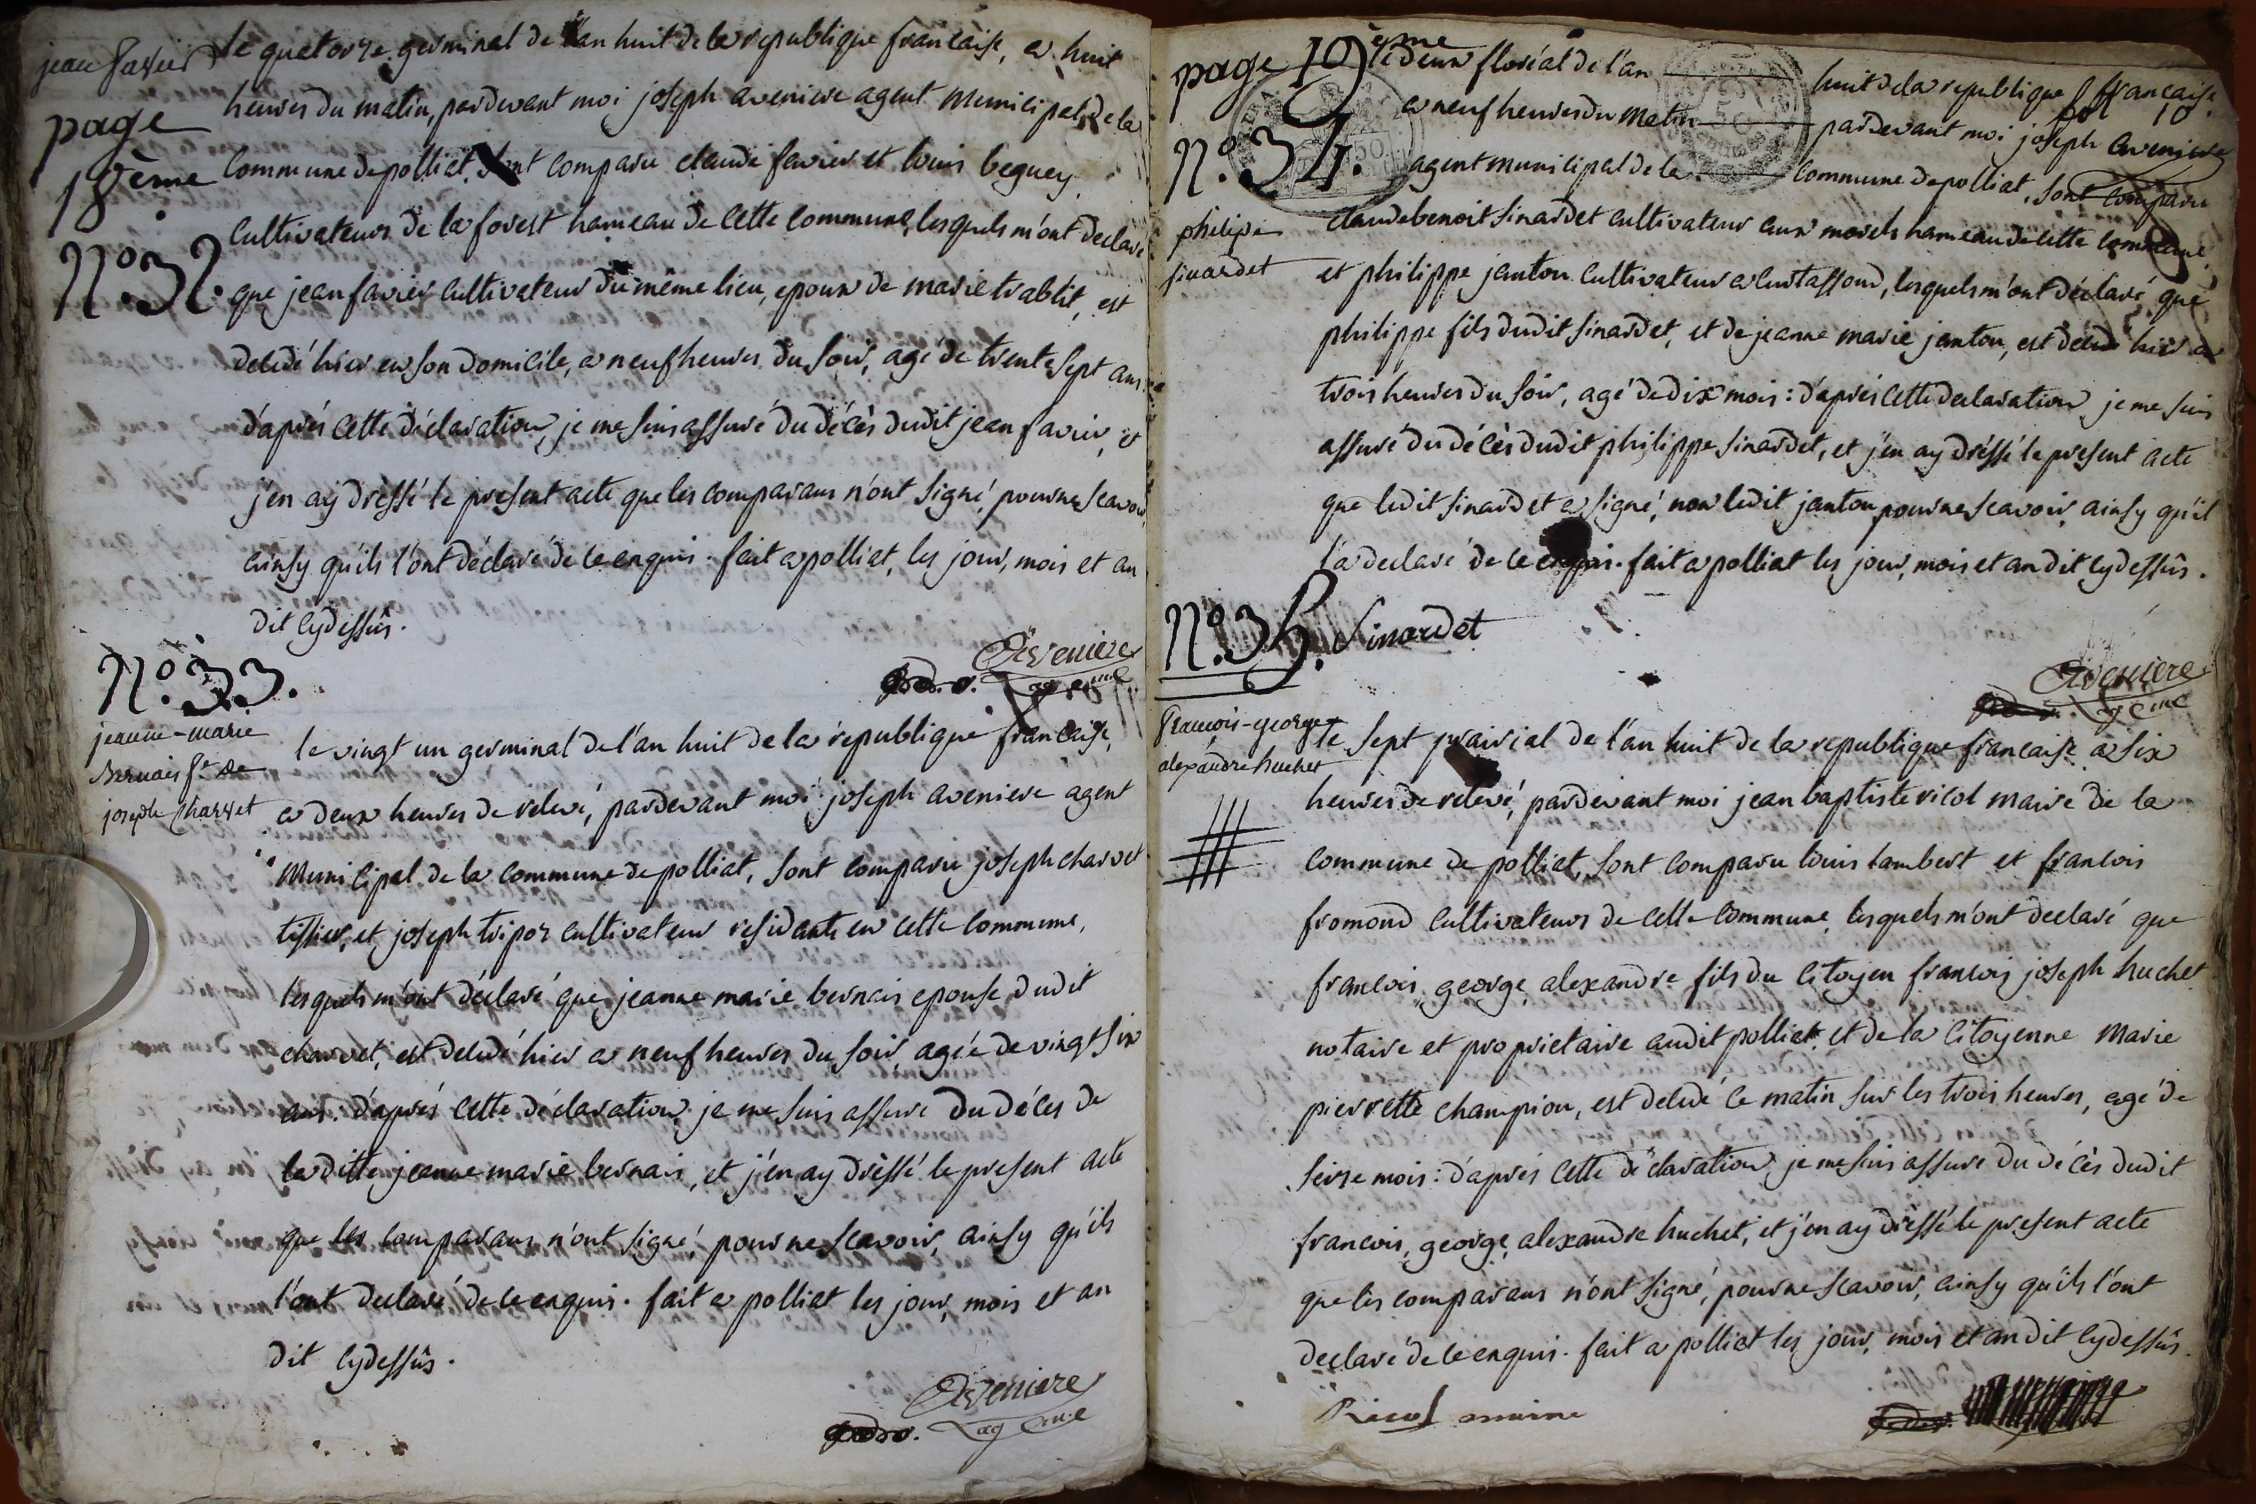 jean favier
page
18ème
N° 32.
le quatorze germinal de l'an huit de la republique francaise, a huit
heures du matin, pardevant moi joseph aveniere agent municipal de la
commune de polliat, sont comparu claude favier et louis beguey
cultivateurs de la forest hameau de cette commune, lesquels m'ont declaré
que jean favier cultivateur du même lieu, epoux de marie trablit, est
dcédé hier en son domicile, a neuf heures du soir, agé de trente sept ans
d'après cette déclaration, je me suis assuré du décès dudit jean favier, et
j'en ay dréssé le present acte que les comparans n'ont signé, pour ne scavoir,
ainsy qu'ils l'ont déclaré de ce enquis. fait a polliat, les jour, mois et an
dit cydessûs.
Aveniere
ag
N° 33.
jeanne-marie
Bernais fe de
joseph Charvet
le vingt un germinal de l'an huit de la république francaise,
a deux heures de relevé, pardevant moi joseph aveniere agent
municipal de la commune de polliat, sont comparu joseph charvet
tissier, et joseph tripoz cultivateur residants en cette commune,
lesquels m'ont déclaré que jeanne marie bernais epouse dudit
charvet, est decedé hier a neuf heures du soir, agée de vingt six
ans: d'après cette déclaration, je me suis assuré du décès de
la ditte jeanne marie bernais, et j'en ay dréssé le present acte
que les comparans n'ont signé, pour ne scavoir, ainsy qu'ils
l'ont declaré de ce enquis. fait a polliat les jour, mois et an
dit cydessûs.
Aveniere
ag
page 19ème
N° 34.
philipe
sinardet
fol 10
le deux floréal de l'an huit de la republique francaise
a neuf heures du matin pardevant moi joseph aveniere
agent municipal de la commune de polliat, sont comparu
claude benoit sinardet cultivateur aux morels hameau de cette commune,
et philippe janton cultivateur a curtafond, lesquels m'ont déclaré que
philippe fils dudit sinardet, et de jeanne marie janton, est décédé hier a
trois heures du soir, agé de dix mois: d'après cette declaration je me suis
assuré du décès dudit philippe sinardet, et j'en ay dréssé le present acte
que ledit sinardet a signé, non ledit janton pour ne scavoir, ainsy qu'il
l'a declaré de ce enquis. fait a polliat les jour, mois et an dit cydessûs.
Sinardet
Aveniere
N° 35.
François-george
alexandre huchet
le sept prairial de l'an huit de la republique francaise a six
heures de relevé, pardevant moi jean baptiste ricol maire de la
commune de polliat, sont comparu louis lambert et francois
fromond cultivateurs de cette commune, lesquels m'ont declaré que
francois, george, alexandre fils du citoyen francois joseph huchet
notaire et proprietaire audit polliat, et de la citoyenne marie
pierrette champion, est decedé ce matin sur les trois heures, agé de
seize mois: d'après cette déclaration, je me suis assuré du décès dudit
francois, george, alexandre huchet, et j'en ay dréssé le present acte
que les comparans n'ont signé, pour ne scavoir, ainsy qu'ils l'ont
declaré de ce enquis. fait a polliat les jour, mois et an dit cydessûs.
Ricol maire